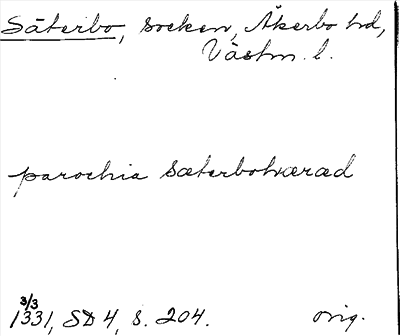 Säterbo, socken, Åkerbo hd,
Västm. l.
parochia sæterbohæræd
3/3
1331, SD 4, s. 204. orig.